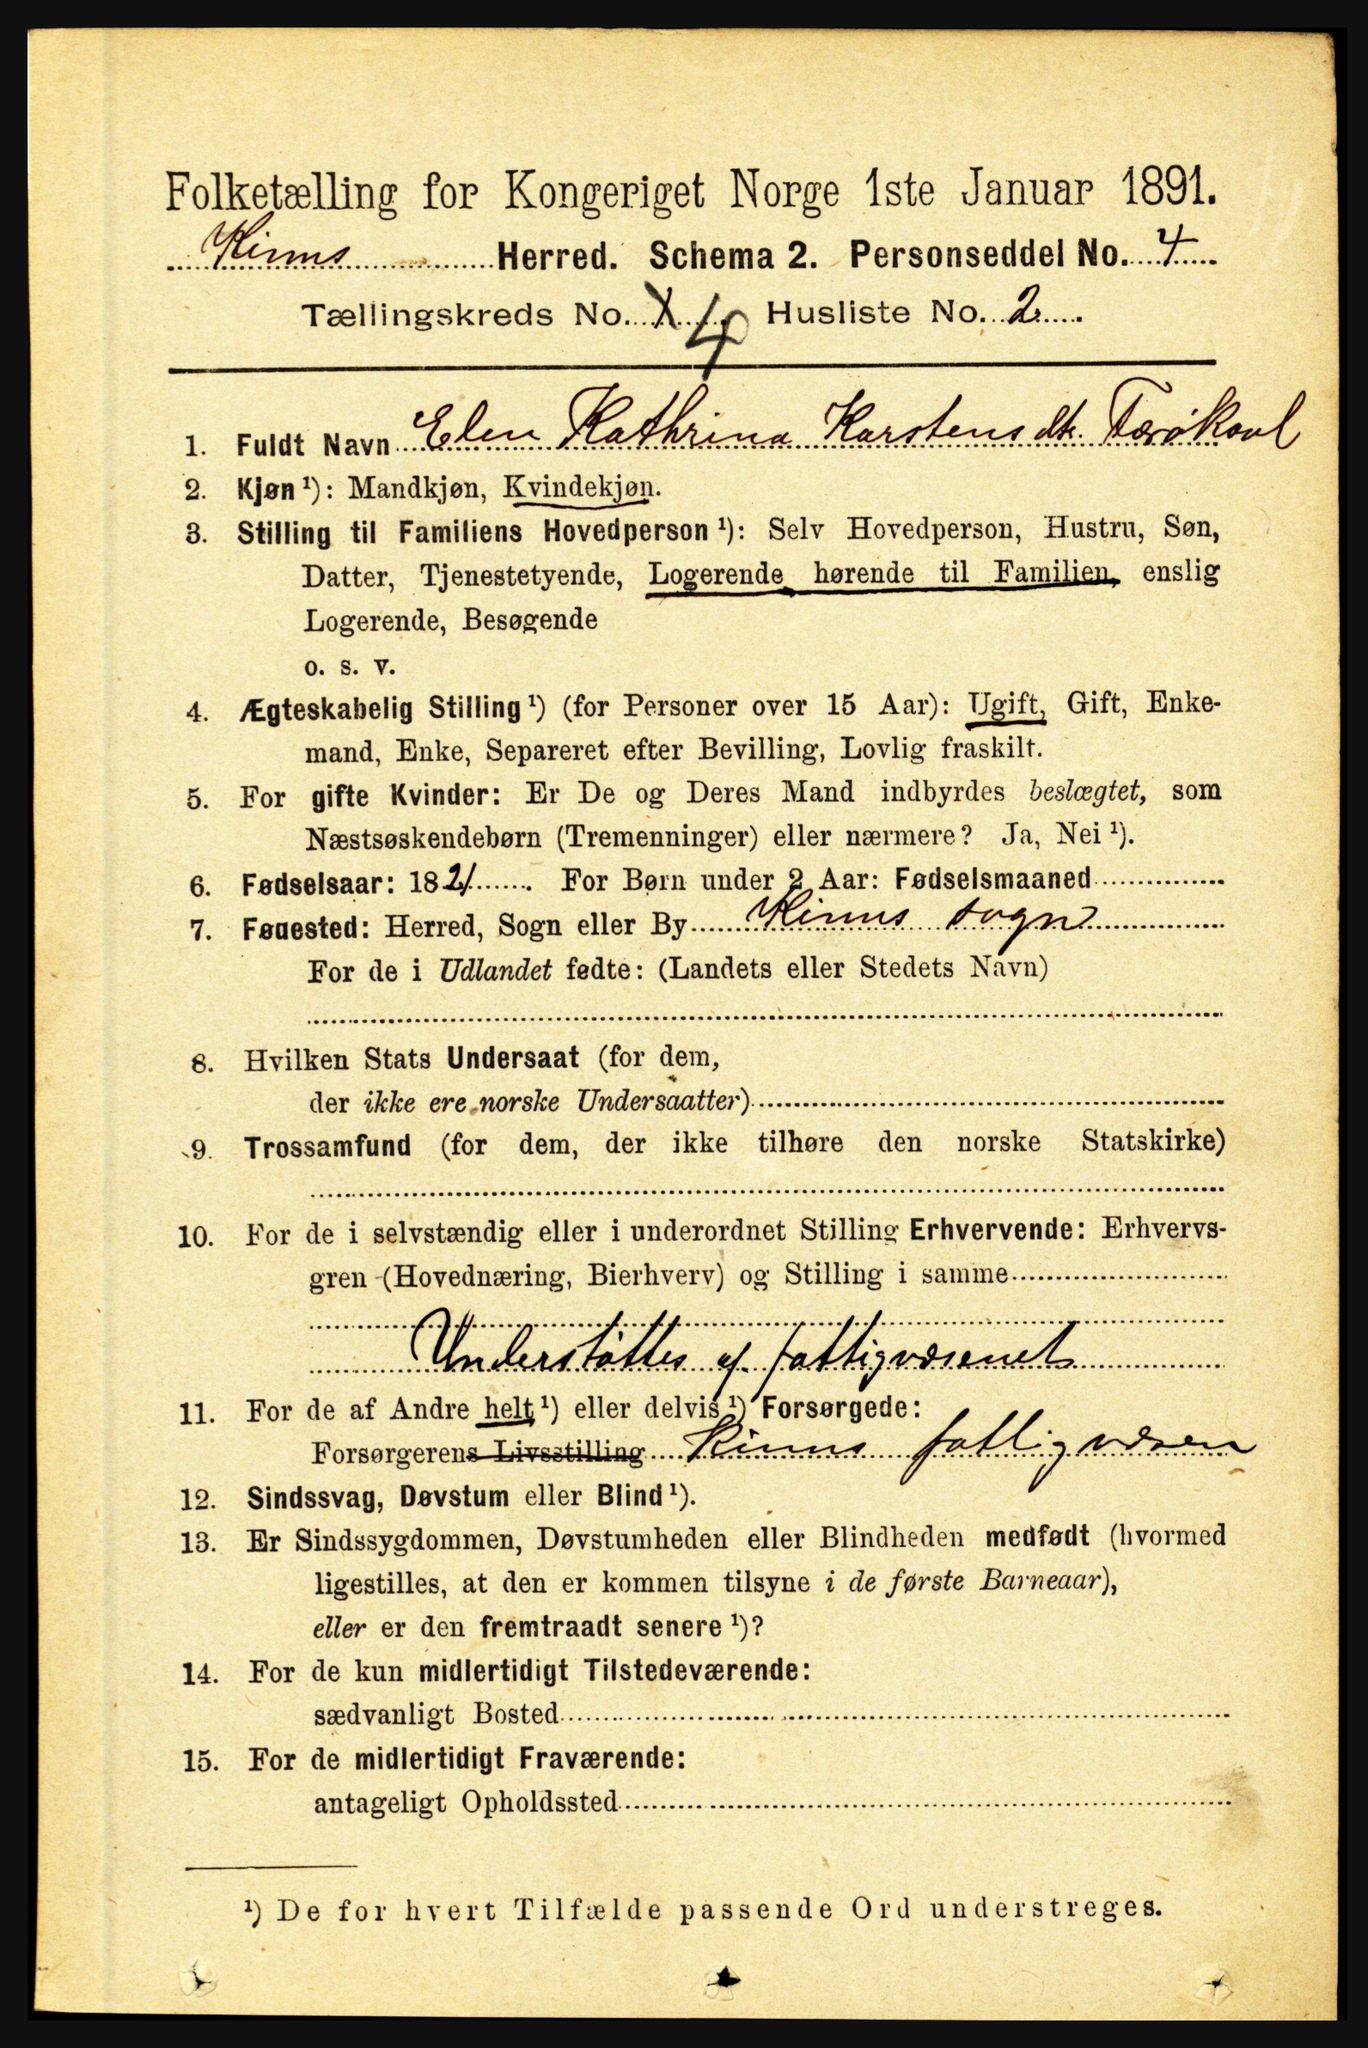 Folketælling for Kongeriget Norge 1ste Januar 1891.
Kinns Herred. Schema 2. Personseddel No. 4
Tællingskreds No. 4 Husliste No. 2
1. Fuldt Navn Elen Kathrina Karstens dtr.
2. Kjøn ¹): Mandkjøn, Kvindekjøn.
3. Stilling til Familiens Hovedperson ¹): Selv Hovedperson, Hustru, Søn,
Datter, Tjenestetyende, Logerende hørende til Familien, enslig
Logerende, Besøgende
o. s. v.
4. Ægteskabelig Stilling ¹) (for Personer over 15 Aar): Ugift, Gift, Enke-
mand, Enke, Separeret efter Bevilling, Lovlig fraskilt.
5. For gifte Kvinder: Er De og Deres Mand indbyrdes beslægtet, som
Næstsøskendebørn (Tremenninger) eller nærmere? Ja, Nei ¹).
6. Fødselsaar: 1821. For Børn under 2 Aar: Fødselsmaaned
7. Fødested: Herred, Sogn eller By Kinns sogn
For de i Udlandet fødte: (Landets eller Stedets Navn)
8. Hvilken Stats Undersaat (for dem,
der ikke ere norske Undersaatter)
9. Trossamfund (for dem, der ikke tilhøre den norske Statskirke)
10. For de i selvstændig eller i underordnet Stilling Erhvervende: Erhvervs-
gren (Hovednæring, Bierhverv) og Stilling i samme
Understøttes af fattigvæsenet
11. For de af Andre helt ¹) eller delvis ¹) Forsørgede:
Forsørgerens Livsstilling Kinns fattigvæsen
12. Sindssvag, Døvstum eller Blind ¹).
13. Er Sindssygdommen, Døvstumheden eller Blindheden medfødt (hvormed
ligestilles, at den er kommen tilsyne i de første Barneaar),
eller er den fremtraadt senere ¹)?
14. For de kun midlertidigt Tilstedeværende:
sædvanligt Bosted
15. For de midlertidigt Fraværende:
antageligt Opholdssted
¹) De for hvert Tilfælde passende Ord understreges.